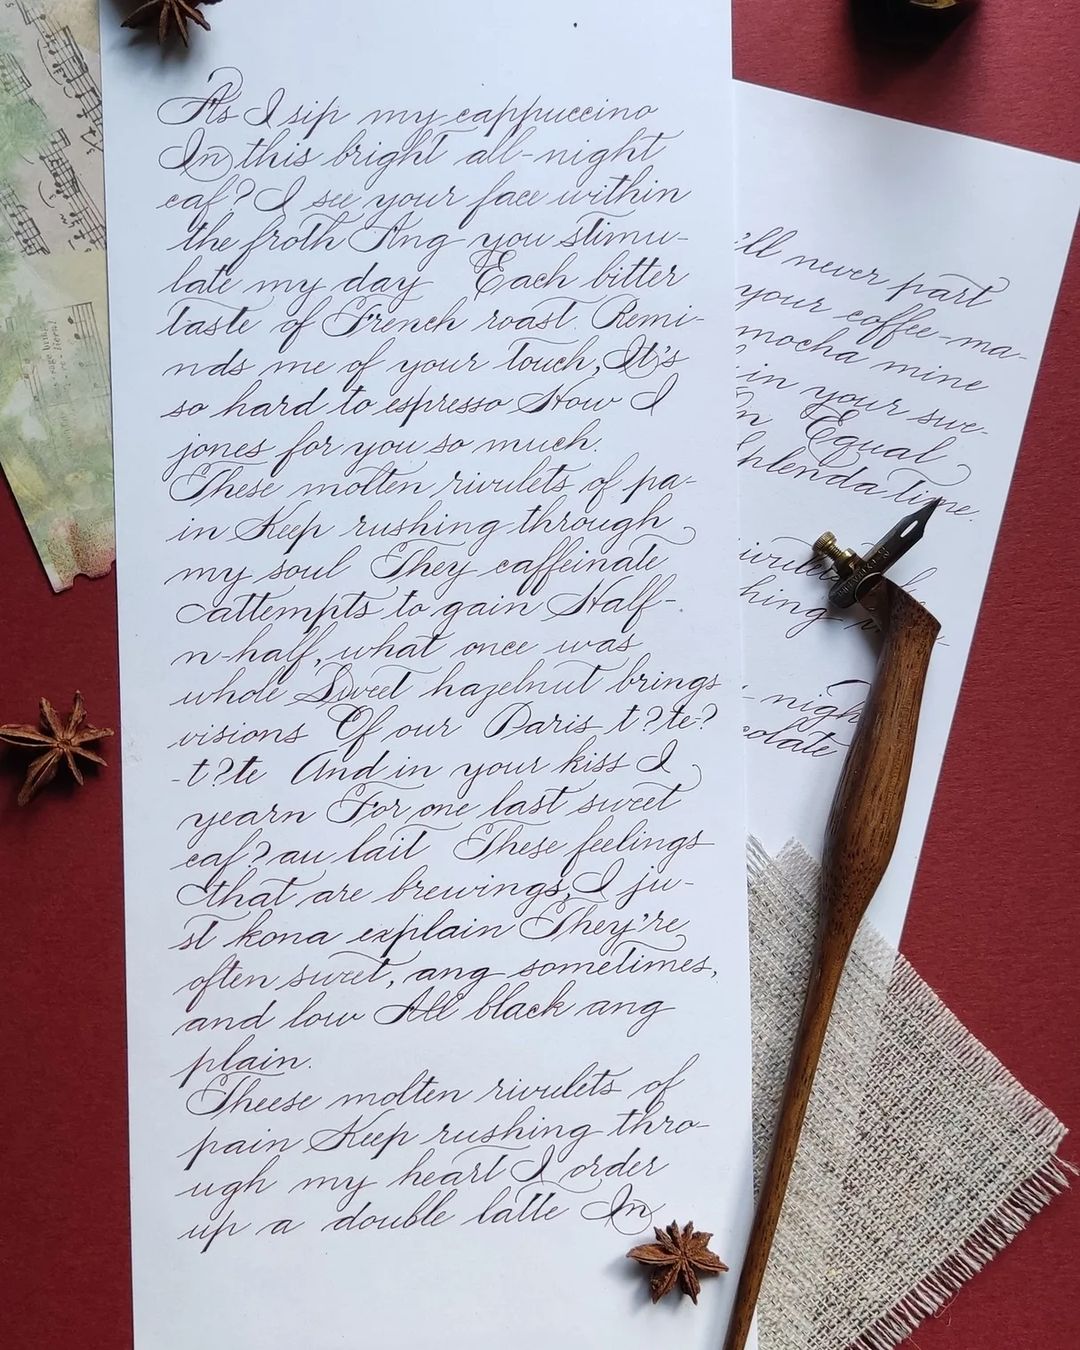 As I sip my cappuccino
In this bright all-night
caf? I see your face within
the froth Ang you stimu-
late my day Each bitter
taste of French roast. Remi-
nds me of your touch, It's
so hard to espresso How I
jones for you so much.
These molten rivulets of pa-
in Keep rushing through
my soul They caffeinate
attempts to gain Half-
n-half, what once was
whole Sweet hazelnut brings
visions Of our Paris t?te?
-t?te And in your kiss I
yearn For one last sweet
caf? au lait These feelings
that are brewings, I ju-
st kona explain They're
often sweet, ang sometimes,
and low All black ang
plain.
Theese molten rivulets of
pain Keep rushing thro-
ugh my heart I order
up a double latte In
'll never part
your coffee-ma-
mocha mine
in your swe-
In Equal
Splenda time.
-nigh